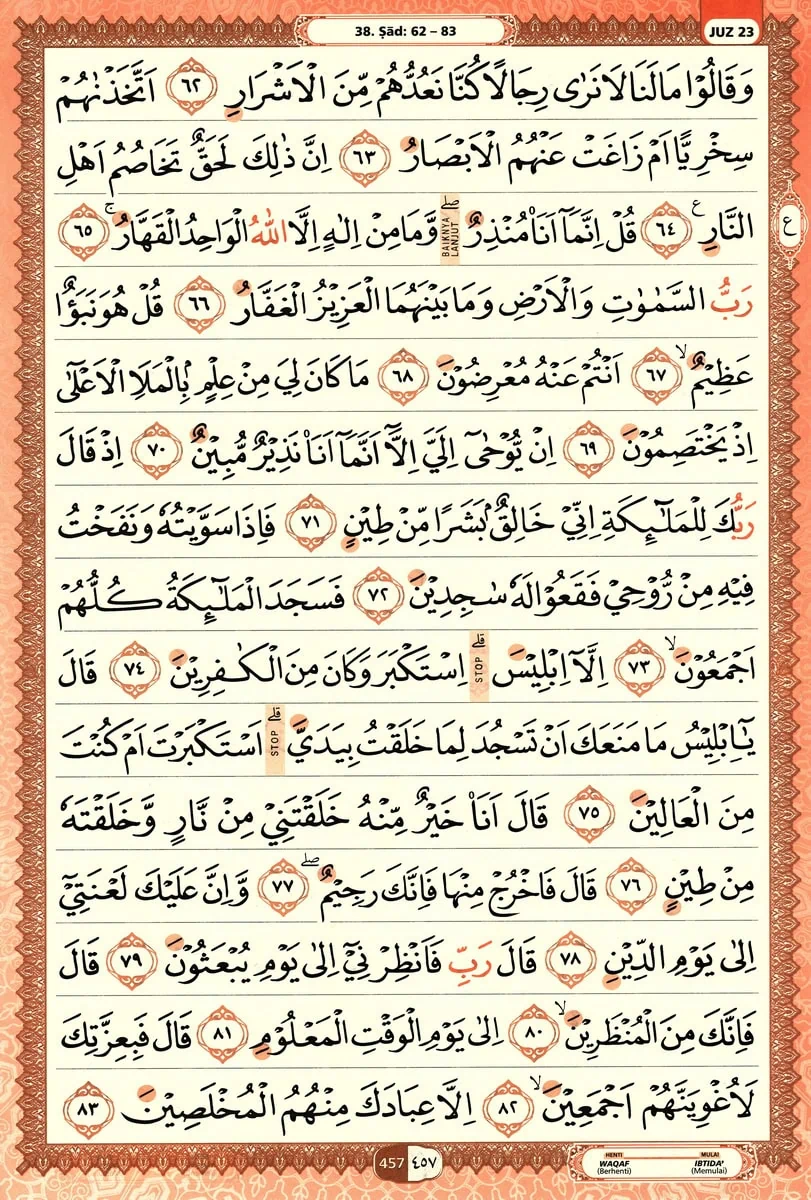 38. Ṣād: 62 – 83
JUZ 23
وَقَالُوْا مَا لَنَا لَا نَرٰى رِجَالًا كُنَّا نَعُدُّهُمْ مِّنَ الْاَشْرَارِ ٦٢ اَتَّخَذْنٰهُمْ
سِخْرِيًّا اَمْ زَاغَتْ عَنْهُمُ الْاَبْصَارُ ٦٣ اِنَّ ذٰلِكَ لَحَقٌّ تَخَاصُمُ اَهْلِ
النَّارِ ࣖ ٦٤ قُلْ اِنَّمَآ اَنَا۠ مُنْذِرٌ ۖ BAIKNYA LANJUT وَّمَا مِنْ اِلٰهٍ اِلَّا اللّٰهُ الْوَاحِدُ الْقَهَّارُ ۚ ٦٥
ع
رَبُّ السَّمٰوٰتِ وَالْاَرْضِ وَمَا بَيْنَهُمَا الْعَزِيْزُ الْغَفَّارُ ٦٦ قُلْ هُوَ نَبَؤٌا
عَظِيْمٌ ۙ ٦٧ اَنْتُمْ عَنْهُ مُعْرِضُوْنَ ٦٨ مَا كَانَ لِيَ مِنْ عِلْمٍۢ بِالْمَلَاِ الْاَعْلٰٓى
اِذْ يَخْتَصِمُوْنَ ٦٩ اِنْ يُّوْحٰىٓ اِلَيَّ اِلَّآ اَنَّمَآ اَنَا۠ نَذِيْرٌ مُّبِيْنٌ ٧٠ اِذْ قَالَ
رَبُّكَ لِلْمَلٰۤىِٕكَةِ اِنِّيْ خَالِقٌۢ بَشَرًا مِّنْ طِيْنٍ ٧١ فَاِذَا سَوَّيْتُهٗ وَنَفَخْتُ
فِيْهِ مِنْ رُّوْحِيْ فَقَعُوْا لَهٗ سٰجِدِيْنَ ٧٢ فَسَجَدَ الْمَلٰۤىِٕكَةُ كُلُّهُمْ
اَجْمَعُوْنَ ۙ ٧٣ اِلَّآ اِبْلِيْسَ ۗ STOP اِسْتَكْبَرَ وَكَانَ مِنَ الْكٰفِرِيْنَ ٧٤ قَالَ
يٰٓاِبْلِيْسُ مَا مَنَعَكَ اَنْ تَسْجُدَ لِمَا خَلَقْتُ بِيَدَيَّ ۗ STOP اَسْتَكْبَرْتَ اَمْ كُنْتَ
مِنَ الْعَالِيْنَ ٧٥ قَالَ اَنَا۠ خَيْرٌ مِّنْهُ خَلَقْتَنِيْ مِنْ نَّارٍ وَّخَلَقْتَهٗ
مِنْ طِيْنٍ ٧٦ قَالَ فَاخْرُجْ مِنْهَا فَاِنَّكَ رَجِيْمٌ ۖ ٧٧ وَّاِنَّ عَلَيْكَ لَعْنَتِيْٓ
اِلٰى يَوْمِ الدِّيْنِ ٧٨ قَالَ رَبِّ فَاَنْظِرْنِيْٓ اِلٰى يَوْمِ يُبْعَثُوْنَ ٧٩ قَالَ
فَاِنَّكَ مِنَ الْمُنْظَرِيْنَ ۙ ٨٠ اِلٰى يَوْمِ الْوَقْتِ الْمَعْلُوْمِ ٨١ قَالَ فَبِعِزَّتِكَ
لَاُغْوِيَنَّهُمْ اَجْمَعِيْنَ ۙ ٨٢ اِلَّا عِبَادَكَ مِنْهُمُ الْمُخْلَصِيْنَ ٨٣
457 ٤٥٧
HENTI MULAI
WAQAF IBTIDA'
(Berhenti) (Memulai)